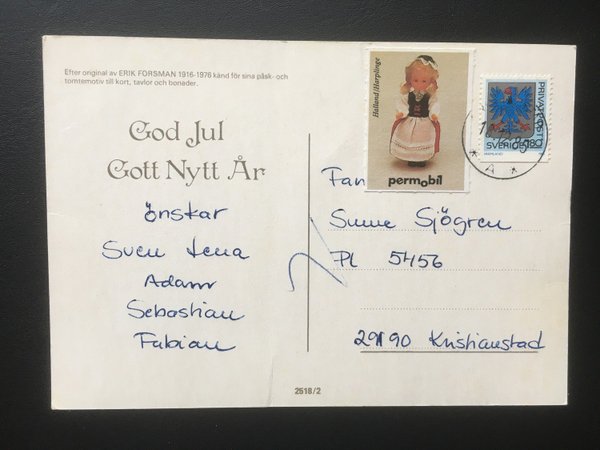 Efter original av ERIK FORSMAN 1916-1976 känd för sina påsk- och
tomtemotiv till kort, tavlor och bonader.
God Jul
Gott Nytt År
önskar
Sven Lena
Adam
Sebastian
Fabian
2518/2
Halland/Harplinge
permobil
PRIVATPOST
SVERIGE 180
Fam
Sune Sjögren
Pl 5456
29190 Kristianstad